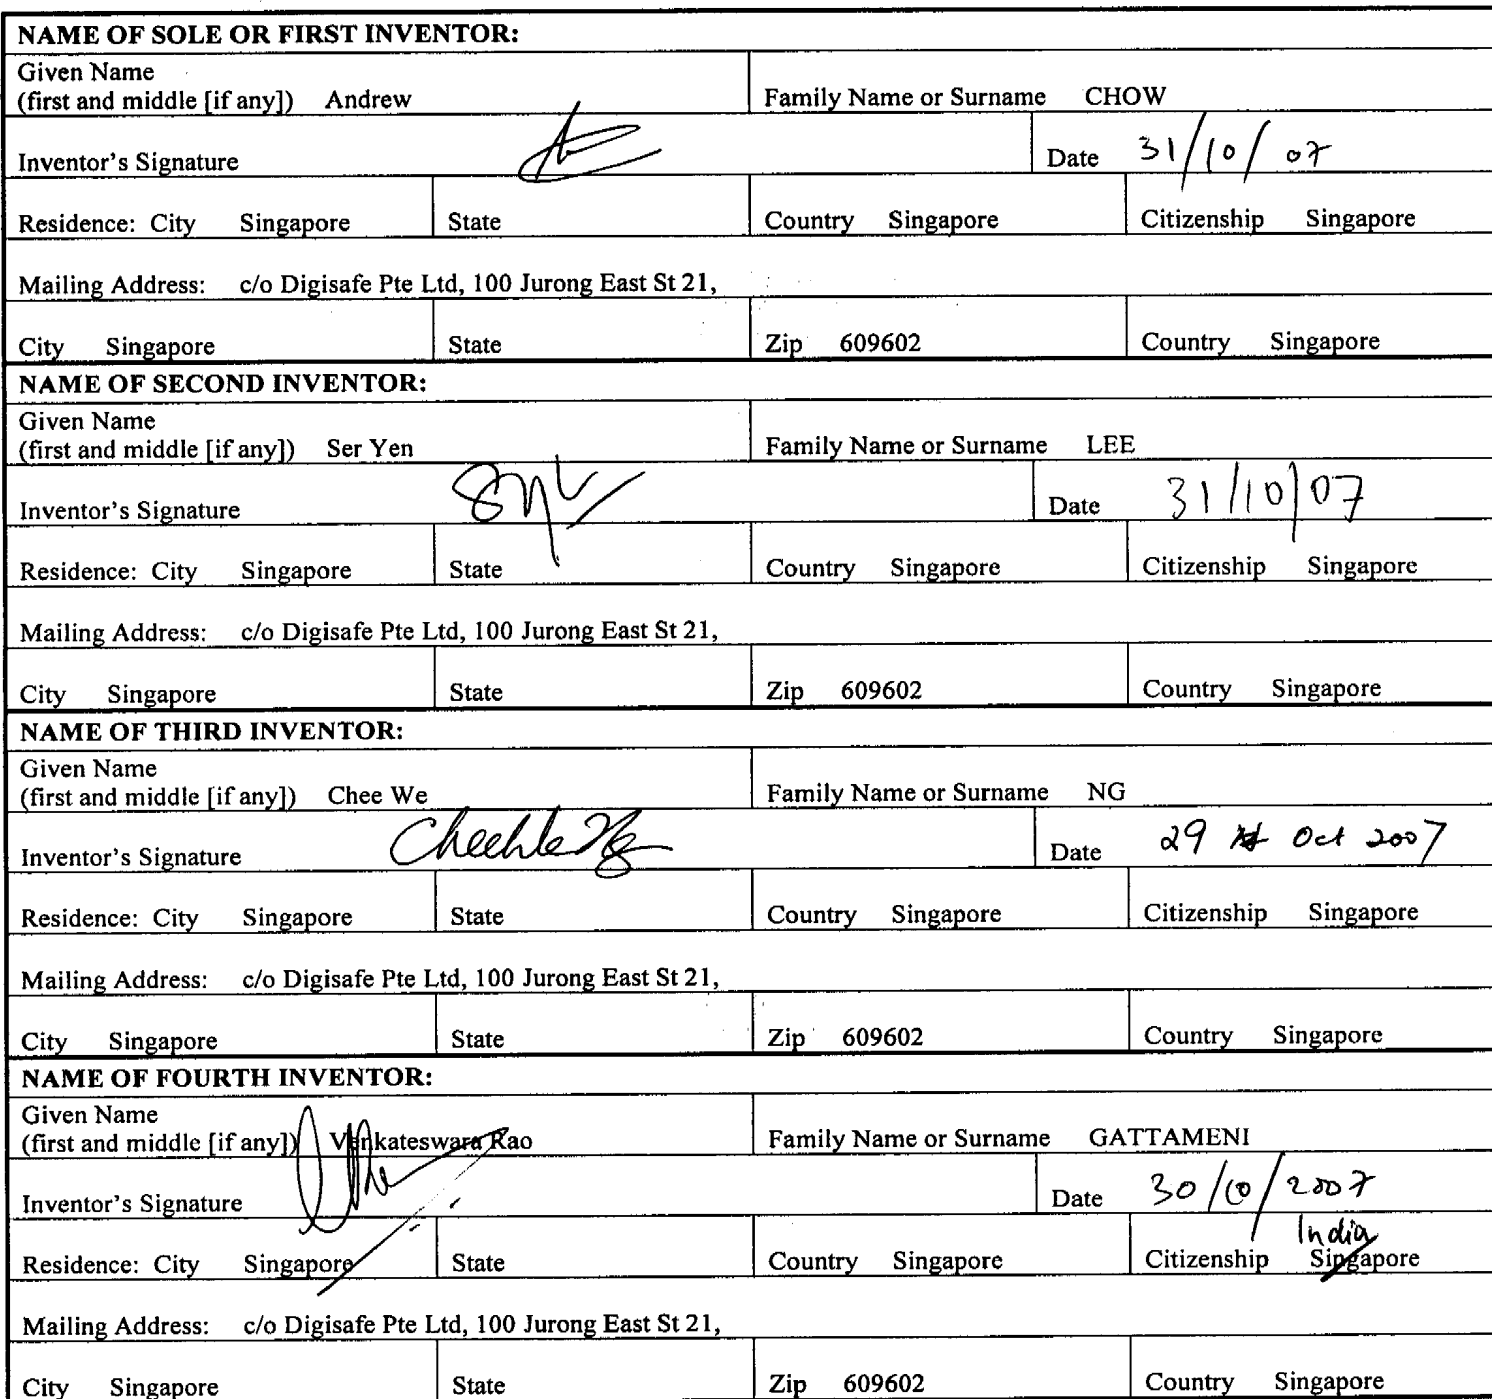 NAME OF SOLE OR FIRST INVENTOR:
Given Name
(first and middle [if any]) Andrew Family Name or Surname CHOW
Inventor's Signature Date 31/10/07
Residence: City Singapore State Country Singapore Citizenship Singapore
Mailing Address: c/o Digisafe Pte Ltd, 100 Jurong East St 21,
City Singapore State Zip 609602 Country Singapore
NAME OF SECOND INVENTOR:
Given Name
(first and middle [if any]) Ser Yen Family Name or Surname LEE
Inventor's Signature Date 31/10/07
Residence: City Singapore State Country Singapore Citizenship Singapore
Mailing Address: c/o Digisafe Pte Ltd, 100 Jurong East St 21,
City Singapore State Zip 609602 Country Singapore
NAME OF THIRD INVENTOR:
Given Name
(first and middle [if any]) Chee We Family Name or Surname NG
Inventor's Signature CheeWe Ng Date 29 Oct 2007
Residence: City Singapore State Country Singapore Citizenship Singapore
Mailing Address: c/o Digisafe Pte Ltd, 100 Jurong East St 21,
City Singapore State Zip 609602 Country Singapore
NAME OF FOURTH INVENTOR:
Given Name
(first and middle [if any]) Venkateswara Rao Family Name or Surname GATTAMENI
Inventor's Signature Date 30/10/2007
India
Residence: City Singapore State Country Singapore Citizenship Singapore
Mailing Address: c/o Digisafe Pte Ltd, 100 Jurong East St 21,
City Singapore State Zip 609602 Country Singapore